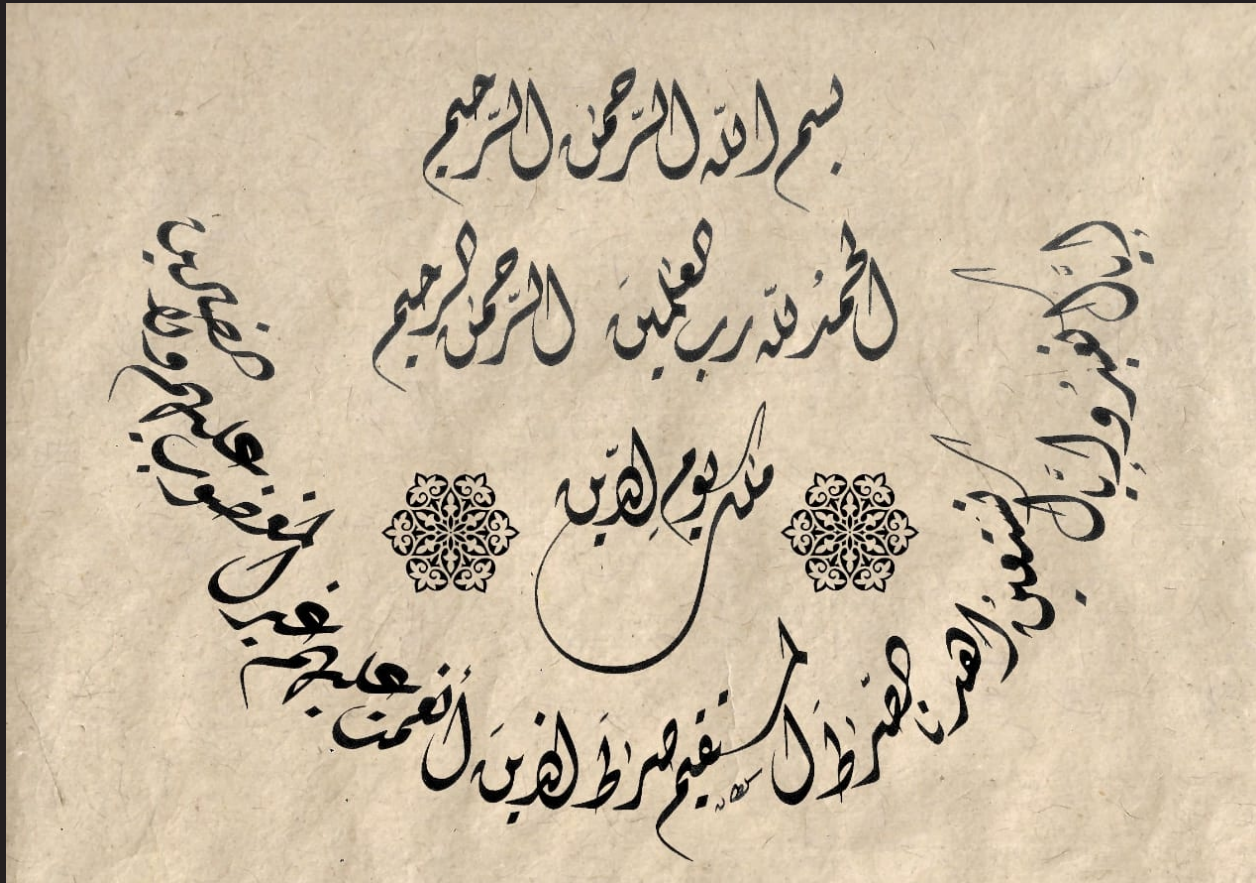 بسم الله الرّحمٰن الرّحيم
الحمدُ لله رب العٰلمينَ الرّحمٰن الرحيم
مٰلك يوم الدّين
إيّاك نعبدُ وإيّاك نستعينُ اهدنا الصّرٰطَ المستقيم صرٰطَ الذينَ أنعمت عليهم غير المغضوب عليهم ولا الضالين